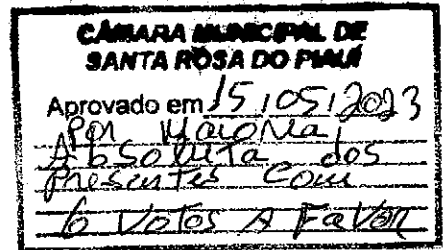 CÂMARA MUNICIPAL DE
SANTA ROSA DO PIAUÍ
Aprovado em 15/05/2023
Por Maioria
Absoluta dos
Presentes Com
6 Votos A Favor